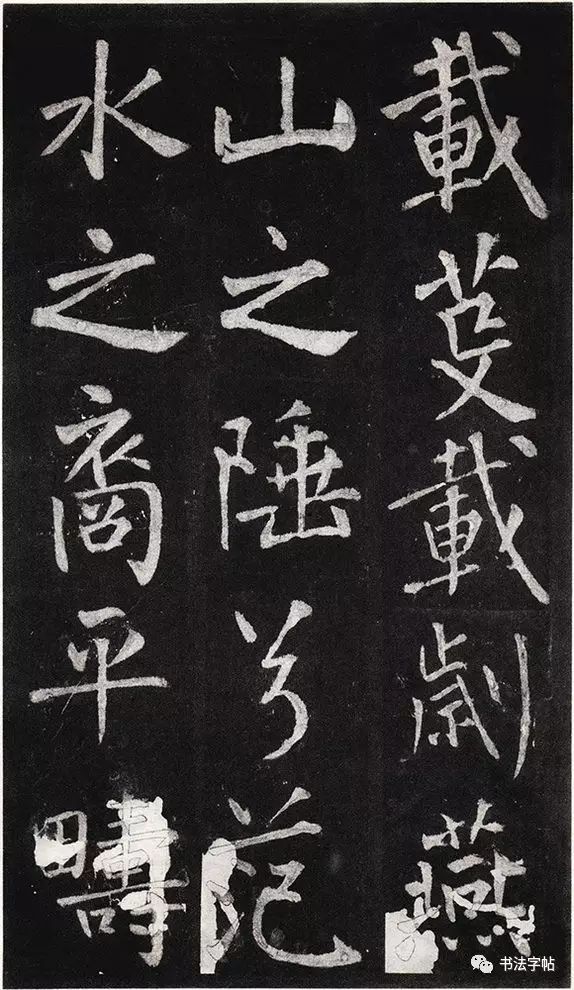 載芟載劌燕
山之陲兮范
水之裔平疇
书法字帖